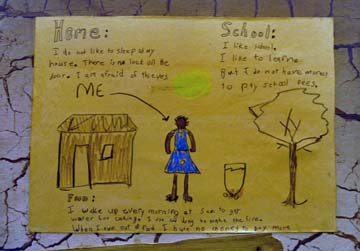 Home:
I do not like to sleep at my
house. There is no lock on the
door. I am afraid of thieves
ME
School:
I like school.
I like to learn.
But I do not have money
to pay school fees.
Food:
I wake up every morning at 5am to get
water for cooking. I use dung to make the fire.
When I run out of food I have no money to buy more